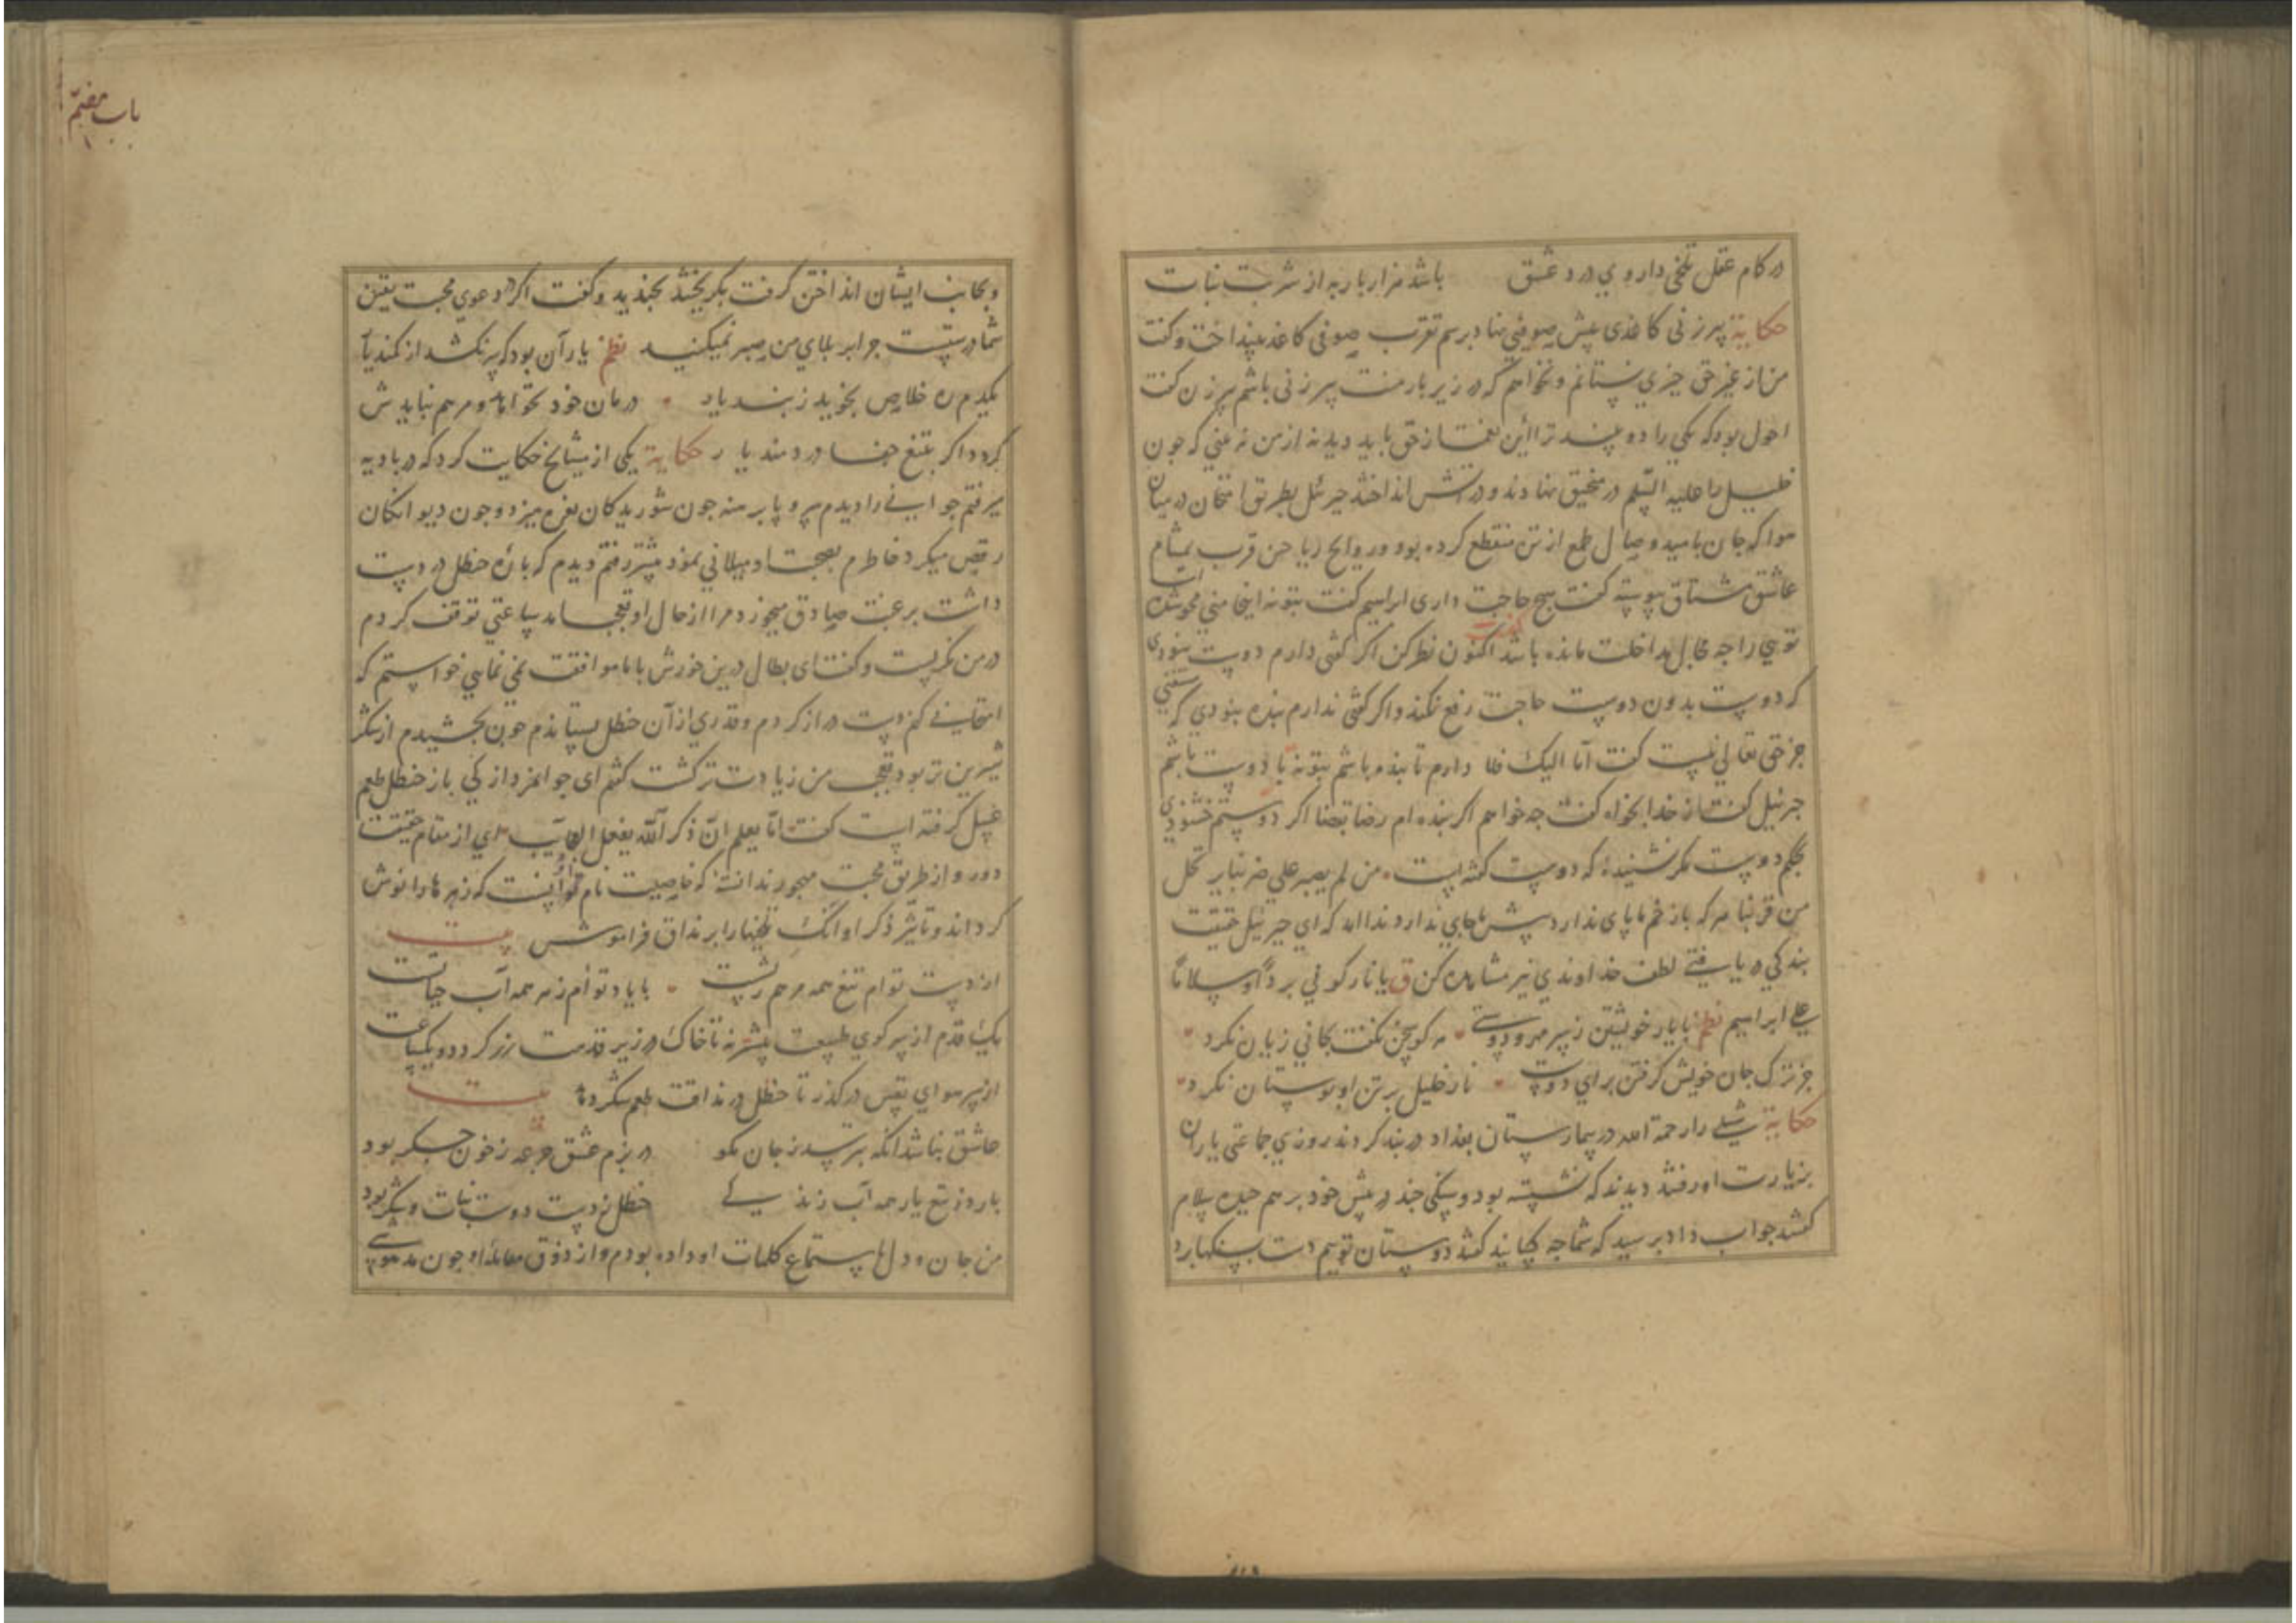 در کام عقل تلخی داروی درد عشق باشد هزار بار به از شربت نبات
حکایة پیرزنی کاغذی پیش صوفی نهاد برسم تقرب صوفی کاغذ بینداخت و کفت
من از غیر حق چیزی نستانم و نخواهم که در زیر بار منت پیرزنی باشم پیرزن کفت
احول بود که یکی را دو بیند ترا این نعمت از حق باید دید نه از من نه بینی که جون
خلیل را علیه السلم در منجنیق نهادند و در آتش انداختند جبرئل بطریق امتحان در میان
هوا که جان بامید وصال طمع از تن منقطع کرده بود و روایح ریاحین قرب بمشام
عاشق مشتاق پیوسته کفت هیچ حاجت داری ابراهیم کفت بتو نه اینجا منی محو شده است
تویی را جه مجال مداخلت مانده باشد اکنون نظر کن اکر کنی دارم دوست نبودی
که دوست بدون دوست حاجت رفع نکند و اکر کنی ندارم بنده نبودی که مستغنی
جز حق تعالی نیست کفت اما الیک فلا دارم تا بنده باشم بتو نه تا دوست باشم
جبرئیل کفت از خدا بخواه کفت جه خواهم اکر بنده ام رضا بقضا اکر دوستم خشنودی
بحکم دوست مکر نشنیده که دوست کفته است من لم یصبر علی ضربنا
من قربنا هر که با زخم ما پای ندارد پیش ما جای ندارد ندا آمد که ای جبرئیل حقیقت
بندکی دریافتی لطف خداوندی نیز مشاهده کن ق یا نار کونی بردا و سلاما
علی ابراهیم نظم با یار خویشتن ز سر مهر و دوستی هر کو سخن نکفت بجانی زیان نکرد
جز ترک جان خویش کرفتن برای دوست نار خلیل بر تن او بوستان نکرد
حکایة شبلی را رحمة الله در بیمارستان بغداد در بند کردند روزی جماعتی یاران
بزیارت او رفتند دیدند که نشسته بود و سنکی جند در پیش خود بر هم جیده سلام
کفتند جواب داد برسید که شما جه کسانید کفتند دوستان توییم دست بسنکها برد
باب هفتم
و بجانب ایشان انداختن کرفت بکریختند بخندید و کفت اکر دعوی محبت یقین
شما درستست جرا بر بلای من صبر نمیکنید نظم یار آن بود که سر نکشد از کمند یار
یکدم ره خلاص نجوید ز بند یار درمان خود نخواهد و مرهم نبایدش
کردد اکر بتیغ جفا دردمند یار حکایة یکی از مشایخ حکایت کرد که در بادیه
میرفتم جوانی را دیدم سر و پا برهنه جون شوریدکان نعره میزد و جون دیوانکان
رقص میکرد خاطرم بصحبت او میلانی نمود پیشتر رفتم دیدم که باره حنظل در دست
داشت برغبت صادق میخورد مرا از حال او تعجب آمد ساعتی توقف کردم
در من نکریست و کفت ای بطال درین خورش با ما موافقت نمی نمایی خواستم که
امتحانی کنم دست دراز کردم و قدری از آن حنظل بستاندم جون بجشیدم از شکر
شیرین تر بود تعجب من زیادت تر کشت کفتم ای جوانمرد از کی باز حنظل طعم
عسل کرفته است کفت اما یعلم ان ذکر الله یفعل العجایب ای از مقام حقیقت
دور و از طریق محبت مهجور ندانسته که خاصیت نام او آنست که زهرها را نوش
کرداند و تاثیر ذکر او آنک تلخیها را بر مذاق فراموش بیت
از دست توام تیغ همه مرهم ریشت با یاد توام زهر همه آب حیاتست
یک قدم از سر کوی طبیعت پیشتر نه تا خاک در زیر قدمت زر کردد و یکساعت
از سر هوای نفس در کذر تا حنظل در مذاقت طعم شکر دهد بیت
عاشق نباشد آنکه بترسد ز جان مکو در بزم عشق جرعه ز خون جکر بود
بارد ز تیغ یار همه آب زندکی حنظل ز دست دوست نبات و شکر بود
من جان و دل باستماع کلمات او داده بودم و از ذوق معامله او جون مدهوشی